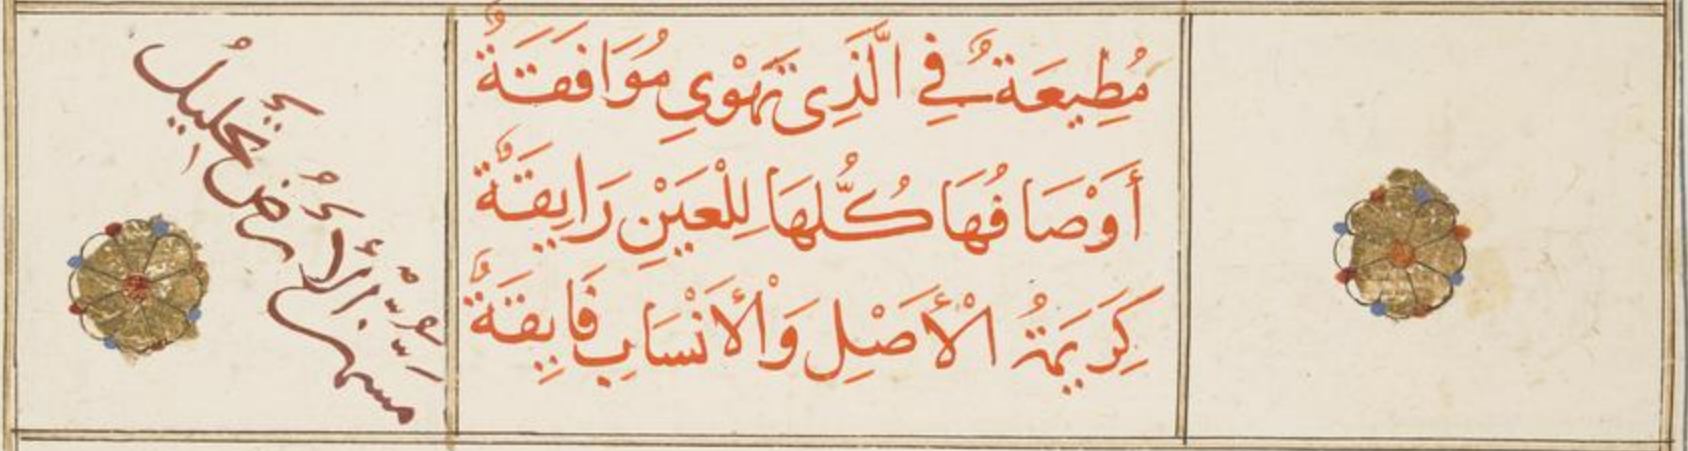 مُطِيعَةٌ فِي الَّذِي تَهْوِي مُوَافَقَةٌ
أَوْصَافُهَا كُلُّهَا لِلْعَيْنِ رَايِقَةٌ
كَرِيمَةُ الْأَصْلِ وَالْأَنْسَابِ فَايِقَةٌ
الْأَرْضُ